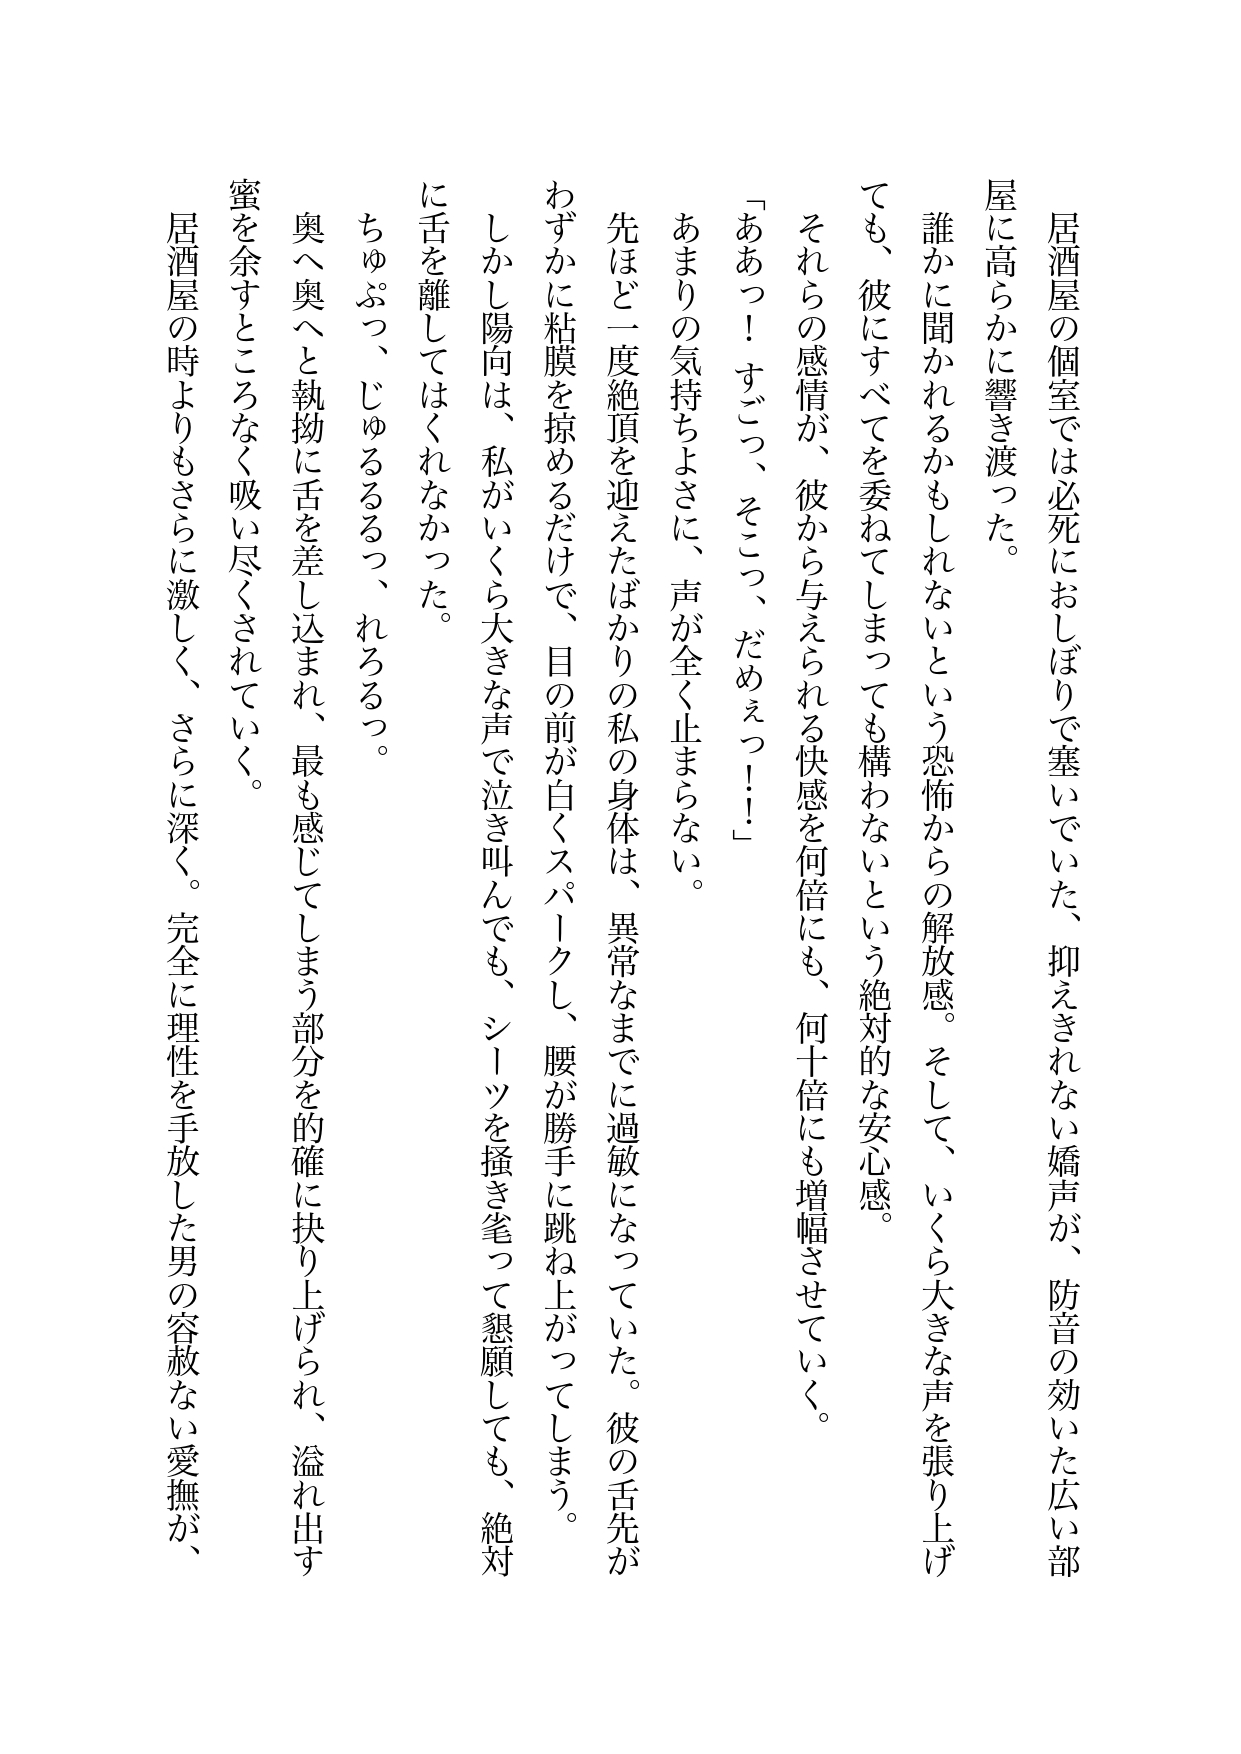 居酒屋の個室では必死におしぼりで塞いでいた、抑えきれない嬌声が、防音の効いた広い部
屋に高らかに響き渡った。
　誰かに聞かれるかもしれないという恐怖からの解放感。そして、いくら大きな声を張り上げ
ても、彼にすべてを委ねてしまっても構わないという絶対的な安心感。
　それらの感情が、彼から与えられる快感を何倍にも、何十倍にも増幅させていく。
「ああっ！　すごっ、そこっ、だめぇっ！！」
　あまりの気持ちよさに、声が全く止まらない。
　先ほど一度絶頂を迎えたばかりの私の身体は、異常なまでに過敏になっていた。彼の舌先が
わずかに粘膜を掠めるだけで、目の前が白くスパークし、腰が勝手に跳ね上がってしまう。
　しかし陽向は、私がいくら大きな声で泣き叫んでも、シーツを掻き毟って懇願しても、絶対
に舌を離してはくれなかった。
　ちゅぷっ、じゅるるるっ、れろるっ。
　奥へ奥へと執拗に舌を差し込まれ、最も感じてしまう部分を的確に抉り上げられ、溢れ出す
蜜を余すところなく吸い尽くされていく。
　居酒屋の時よりもさらに激しく、さらに深く。完全に理性を手放した男の容赦ない愛撫が、